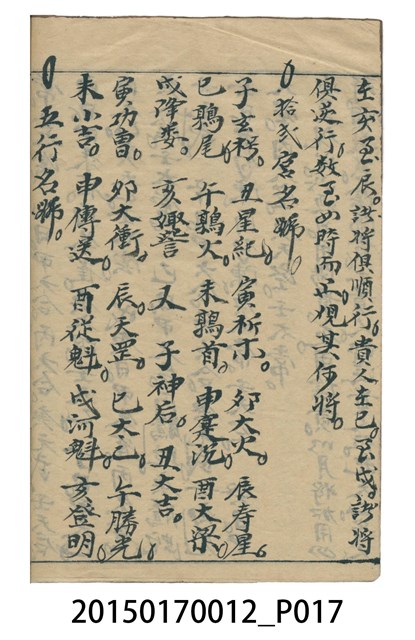 在亥至辰。諸將俱順行。貴人在巳。至戌。諸將
俱逆行。数至時而止。視其何將。
拾貳宮名號。
子玄枵。丑星紀。寅析木。卯大火。辰寿星。
巳鶉尾。午鶉火。未鶉首。申寔沉。酉大梁。
戌降娄。亥娵訾。又子神后。丑大吉。
寅功曹。卯大衝。辰天罡。巳太乙。午勝光。
未小吉。申傳送。酉従魁。戌河魁。亥登明。
五行名號。
20150170012_P017